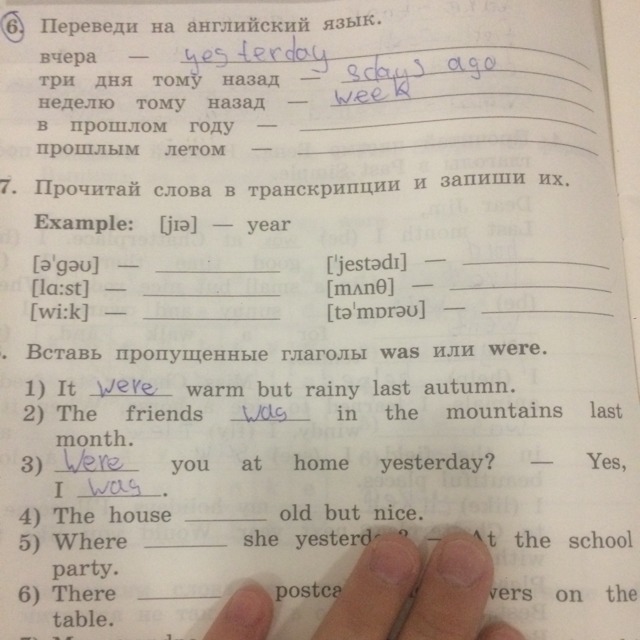 6. Переведи на английский язык.
вчера — yesterday
три дня тому назад — 3days ago
неделю тому назад — week
в прошлом году —
прошлым летом —
7. Прочитай слова в транскрипции и запиши их.
Example: [jɪə] — year
[ə'gəʊ] — ['jestədɪ] —
[lɑ:st] — [mʌnθ] —
[wi:k] — [tə'mɒrəʊ] —
. Вставь пропущенные глаголы was или were.
1) It were warm but rainy last autumn.
2) The friends was in the mountains last
month.
3) Were you at home yesterday? — Yes,
I was.
4) The house old but nice.
5) Where she yesterd ? — At the school
party.
6) There postca wers on the
table.
7)